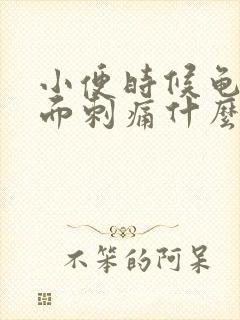 小便時候龟
而刺痛什麼
不笨的阿呆